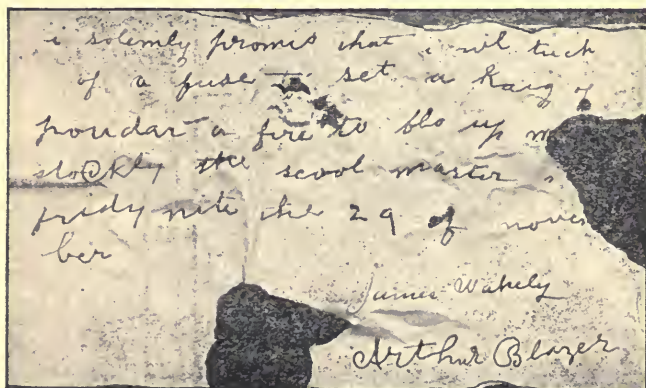 i solemly promis that i wil tuch
of a fuse to set a Kaig of
poudar a fire to blo up m
stockly the scool master
fridy nite the 29 of novem
ber
James Wakely
Arthur Blazer